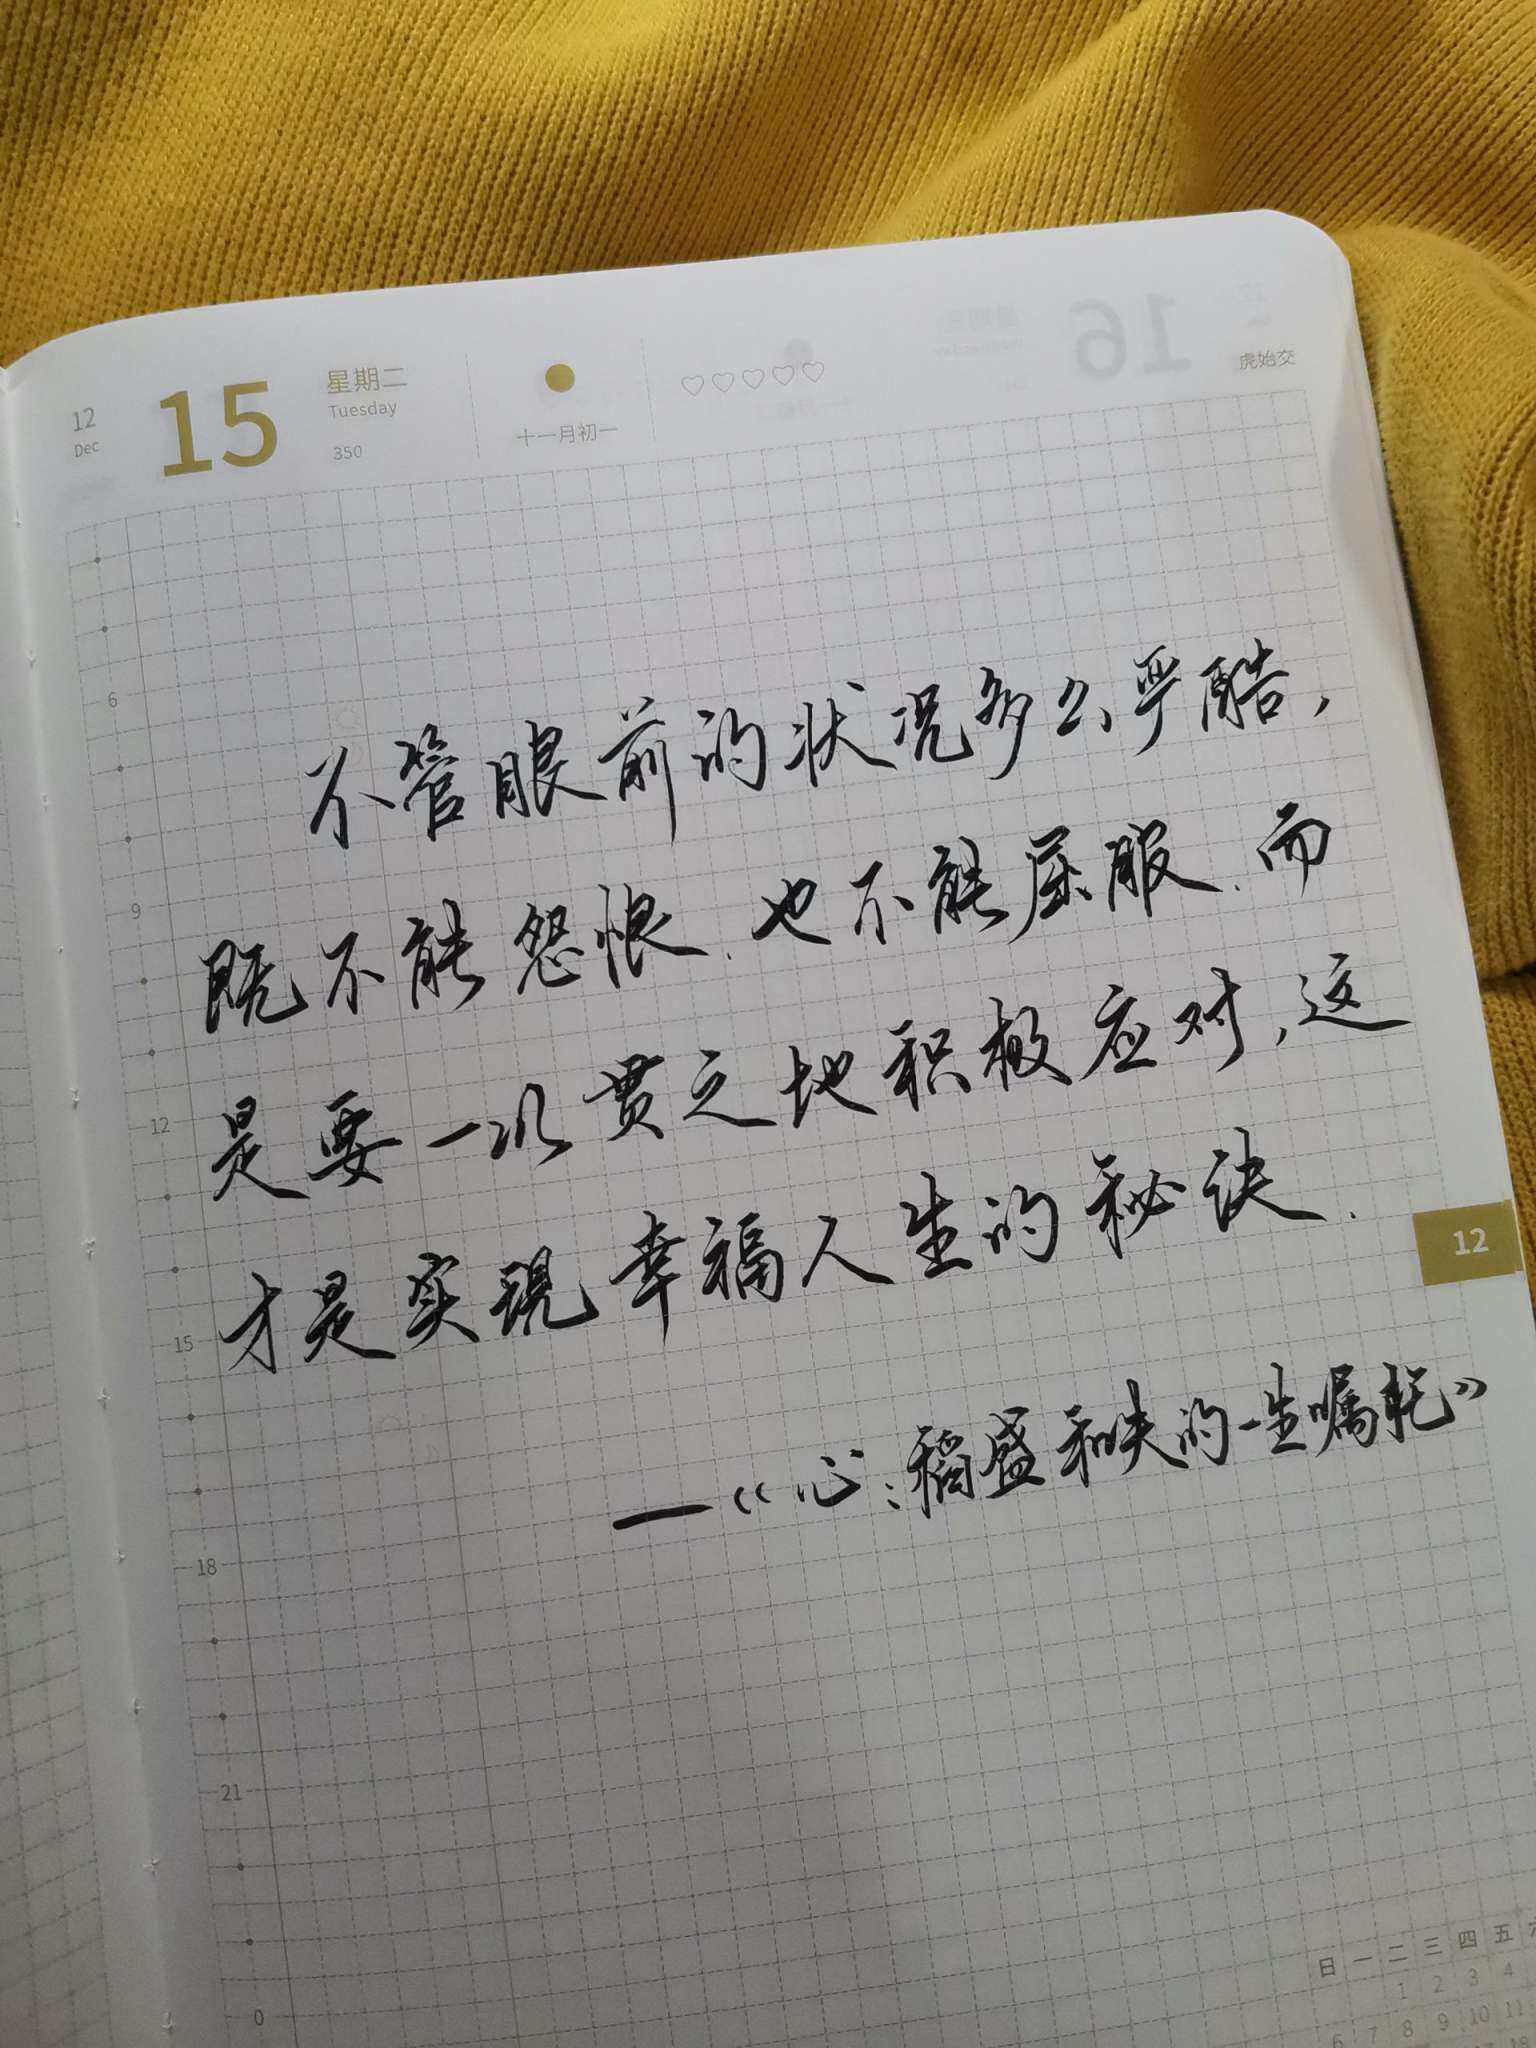 12
Dec
15
星期二
Tuesday
350
十一月初一
虎始交
6
不管眼前的状况多么严酷，
既不能怨恨、也不能屈服、而
9
是要一以贯之地积极应对，这
12
才是实现幸福人生的秘诀.
12
15
—《心:稻盛和夫的一生嘱托》
18
21
0
日 一 二 三 四 五
1 2 3 4
6 7 8 9 10 11